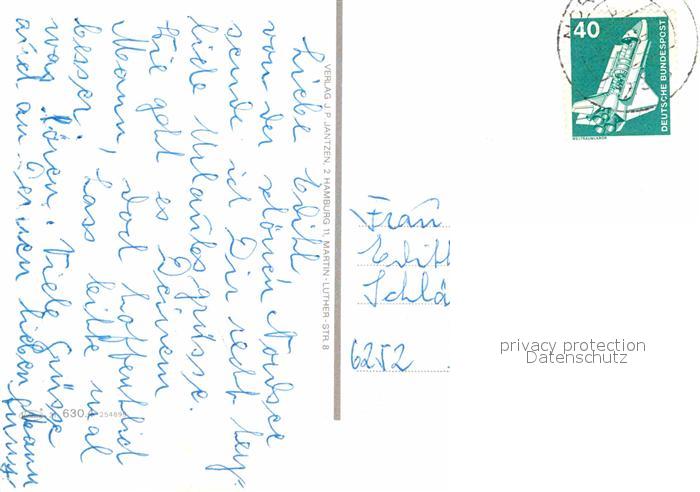 Liebe Edith
von der schönen Nordsee
sende ich Dir recht herz-
liche Urlaubsgrüsse.
Wie geht es Deinem
Mann, doch hoffentlich
besser. Lass bitte mal
was hören. Viele Grüsse
auch an Deinen lieben Mann
VERLAG J. P. JANTZEN, 2 HAMBURG 11, MARTIN-LUTHER-STR. 8
630
40
DEUTSCHE BUNDESPOST
WELTRAUMLABOR
Frau
Edith
Schlä
6252
privacy protection
Datenschutz